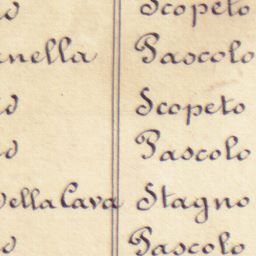 Scopeto
nella Pascolo
Scopeto
Pascolo
Della Cava Stagno
Pascolo